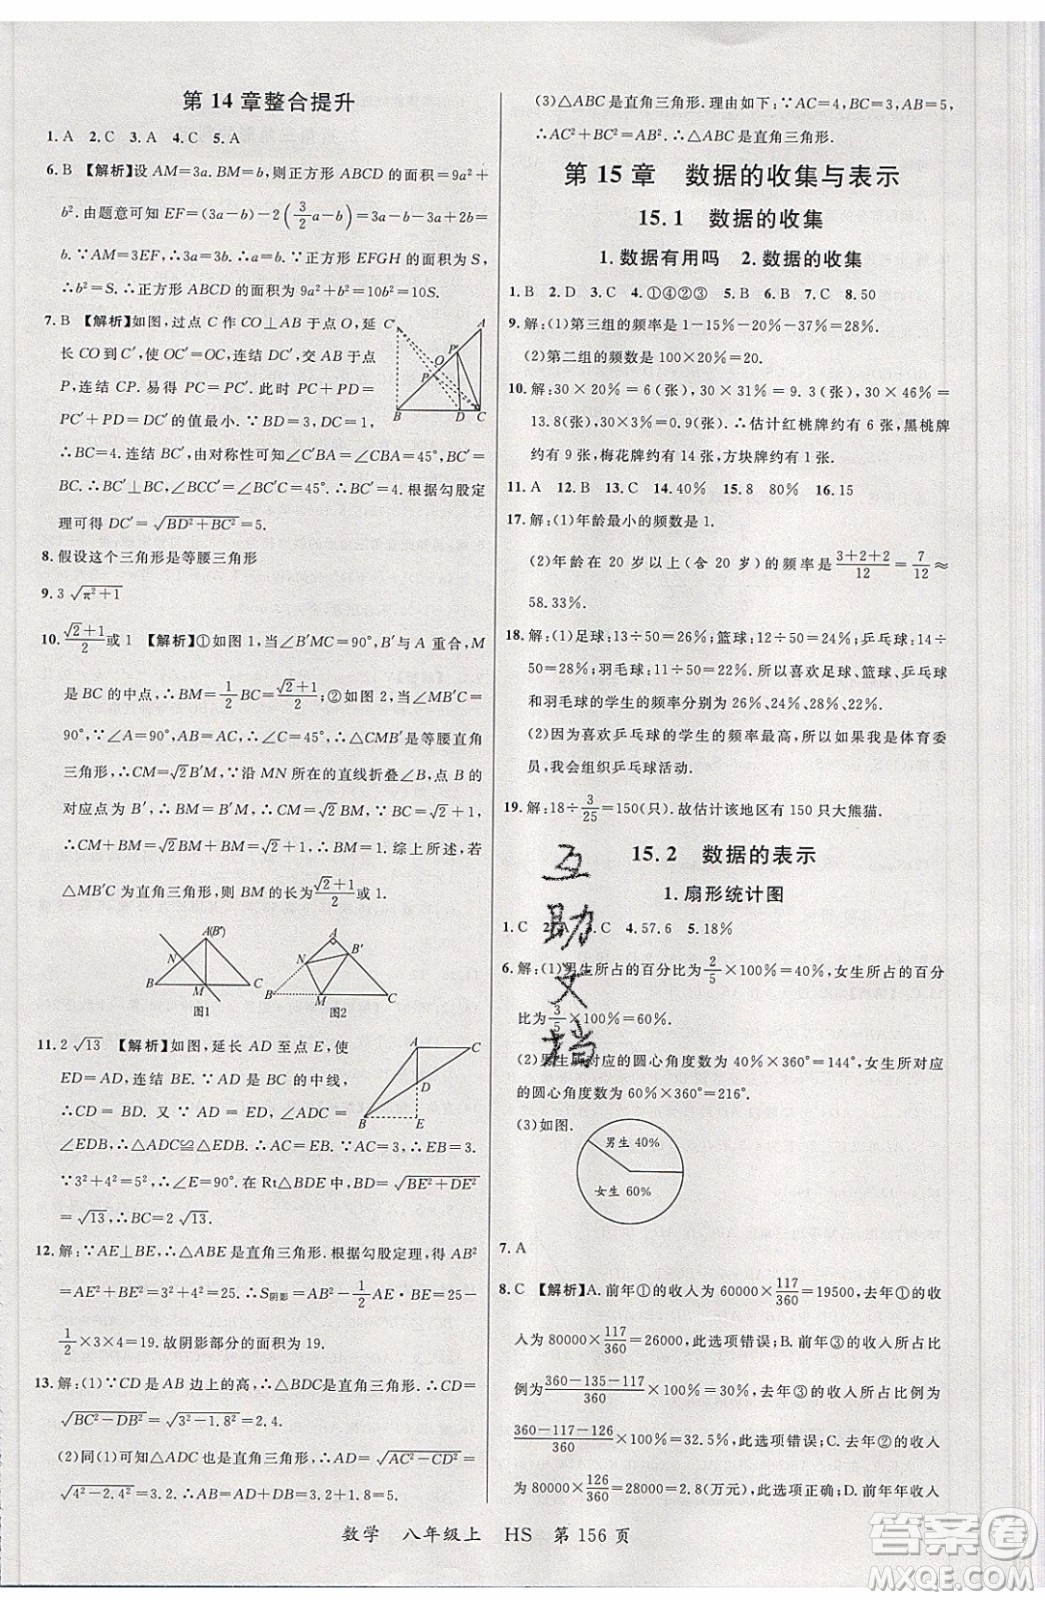 第 14 章整合提升
1. A  2. C  3. A  4. C  5. A
6. B 【解析】设 AM=3a. BM=b, 则正方形 ABCD 的面积=9a²+
b². 由题意可知 EF=(3a-b)-2(3/2 a-b)=3a-b-3a+2b
=b. ∵AM=3EF, ∴3a=3b. ∴a=b. ∵正方形 EFGH 的面积为 S,
∴b²=S. ∴正方形 ABCD 的面积=9a²+b²=10b²=10S.
7. B 【解析】如图, 过点 C 作 CO⊥AB 于点 O, 延
长 CO 到 C′, 使 OC′=OC, 连结 DC′, 交 AB 于点
P, 连结 CP. 易得 PC=PC′. 此时 DP+CP=DP+
PC′=DC′的值最小. ∵BD=3, DC=1,
∴BC=4. 连结 BC′, 由对称性可知∠C′BA=∠CBA=45°, BC′=
BC. ∴∠CBC′=90°, ∠BCC′=∠BC′C=45°. ∴BC′=4. 根据勾股定
理可得 DC′=√(BD²+BC′²)=5.
A
C′
O
P′
P
B
D
C
8. 假设这个三角形是等腰三角形
9. 3√(π²+1)
10. (√2+1)/2 或 1 【解析】①如图 1, 当∠B′MC=90°, B′与 A 重合, M
是 BC 的中点, ∴BM=1/2 BC=(√2+1)/2; ②如图 2, 当∠MB′C=
90°, ∵∠A=90°, AB=AC, ∴∠C=45°. ∴△CMB′是等腰直角
三角形, ∴CM=√2MB′. ∵沿 MN 所在的直线折叠∠B, 点 B 的
对应点为 B′, ∴BM=B′M. ∴CM=√2BM. ∵BC=√2+1,
∴CM+BM=√2BM+BM=√2+1, ∴BM=1. 综上所述, 若
△MB′C 为直角三角形, 则 BM 的长为(√2+1)/2或 1.
A(B′)
N
B
M
C
图1
A
B′
N
B
M
C
图2
11. 2√13 【解析】如图, 延长 AD 至点 E, 使
ED=AD, 连结 BE. ∵AD 是 BC 的中线,
∴CD=BD. 又∵AD=ED, ∠ADC=
∠EDB, ∴△ADC≌△EDB, ∴AC=EB, ∠CAD=∠E. ∵AC=3, ∴EB=3.
∵3²+4²=5², ∴∠E=90°. 在 Rt△BDE 中, BD=√(BE²+DE²)
=√13, ∴BC=2√13.
A
C
D
B
E
12. 解: ∵AE⊥BE, ∴△ABE 是直角三角形. 根据勾股定理, 得 AB²
=AE²+BE²=3²+4²=25. ∴S阴影=AB²-1/2 AE·BE=25-
1/2×3×4=19. 故阴影部分的面积为 19.
13. 解: (1)∵CD 是 AB 边上的高, ∴△BDC 是直角三角形. ∴CD=
√(BC²-DB²)=√(3²-1.8²)=2.4.
(2)同(1)可知△ADC 也是直角三角形, ∴AD=√(AC²-CD²)=
√(4²-2.4²)=3.2. ∴AB=AD+BD=3.2+1.8=5.
(3)△ABC 是直角三角形. 理由如下: ∵AC=4, BC=3, AB=5,
∴AC²+BC²=AB². ∴△ABC 是直角三角形.
第 15 章 数据的收集与表示
15.1 数据的收集
1. 数据有用吗  2. 数据的收集
1. B  2. D  3. C  4. ①④②③  5. B  6. B  7. B  8. 50
9. 解: (1)第三组的频率是 1-15%-20%-37%=28%.
(2)第二组的频数是 100×20%=20.
10. 解: 30×20%=6(张), 30×31%=9.3(张), 30×46%=
13.8(张), 30×3%=0.9(张). ∴估计红桃牌约有 6 张, 黑桃牌
约有 9 张, 梅花牌约有 14 张, 方块牌约有 1 张.
11. A  12. B  13. C  14. 40%  15. 8  80%  16. 15
17. 解: (1)年龄最小的频数是 1.
(2)年龄在 20 岁以上(含 20 岁)的频率是(3+2+2)/12=7/12≈
58.33%.
18. 解: (1)足球: 13÷50=26%; 篮球: 12÷50=24%; 乒乓球: 14÷
50=28%; 羽毛球: 11÷50=22%. 所以喜欢足球、篮球、乒乓球
和羽毛球的学生的频率分别为 26%、24%、28%、22%.
(2)因为喜欢乒乓球的学生的频率最高, 所以如果我是体育委
员, 我会组织乒乓球活动.
19. 解: 18÷3/25=150(只). 故估计该地区有 150 只大熊猫.
15.2 数据的表示
1. 扇形统计图
1. C  2. A  3. C  4. 57.6  5. 18%
6. 解: (1)男生所占的百分比为2/5×100%=40%, 女生所占的百分
比为3/5×100%=60%.
(2)男生所对应的圆心角度数为 40%×360°=144°, 女生所对应
的圆心角度数为 60%×360°=216°.
(3)如图.
男生 40%
女生 60%
7. A
8. C 【解析】A. 前年①的收入为 60000×117/360=19500, 去年①的收
入为 80000×117/360=26000, 此选项错误; B. 前年③的收入所占比例为
(360-135-117)/360×100%=30%, 去年③的收入所占比例为
(360-117-126)/360×100%=32.5%, 此选项错误; C. 去年②的收入
为 80000×126/360=28000=2.8(万元), 此选项正确; D. 前年
数学 八年级上 HS 第 156 页
互助文档
答案圈
MXQE.COM